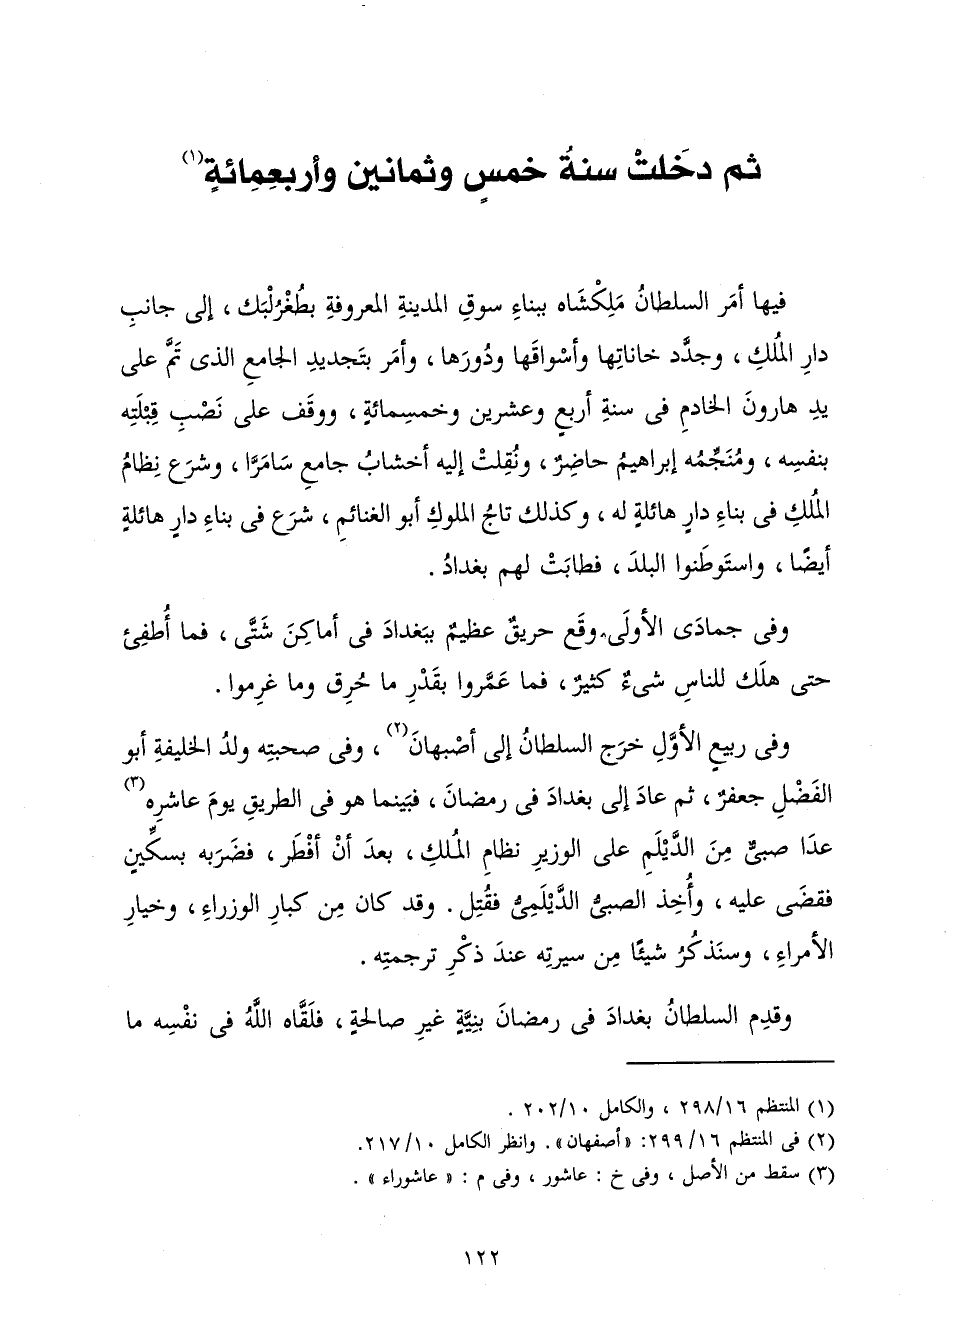 ثم دخَلتْ سنةُ خمسٍ وثمانين وأربعِمِائةٍ(١)
فيها أمَر السلطانُ مَلِكْشَاه ببناءِ سوقِ المدينةِ المعروفةِ بطُغْرُلْبَك ، إلى جانبِ
دارِ المُلكِ ، وجدَّد خاناتِها وأسْواقَها ودُورَها ، وأمَر بتَجديدِ الجامعِ الذى تَمَّ على
يدِ هارونَ الخادمِ فى سنةِ أربعٍ وعشرين وخمسِمائةٍ ، ووقَف على نَصْبِ قِبْلَتِه
بنفسِه ، ومُنَجِّمُه إبراهيمُ حاضِرٌ ، ونُقِلتْ إليه أخشابُ جامعِ سَامَرَّا ، وشرَع نِظامُ
المُلكِ فى بناءِ دارٍ هائلةٍ له ، وكذلك تاجُ الملوكِ أبو الغنائمِ ، شرَع فى بناءِ دارٍ هائلةٍ
أيضًا ، واستَوطَنوا البلدَ ، فطابَتْ لهم بغدادُ .
وفى جمادَى الأولَى وقَع حريقٌ عظيمٌ ببَغدادَ فى أماكِنَ شَتَّى ، فما أُطفِئ
حتى هلَك للناسِ شىءٌ كثيرٌ ، فما عَمَّروا بقَدْرِ ما حُرِق وما غرِموا .
وفى ربيعٍ الأوَّلِ خرَج السلطانُ إلى أصْبهانَ(٢) ، وفى صحبتِه ولدُ الخليفةِ أبو
الفَضْلِ جعفرٌ ، ثم عادَ إلى بغدادَ فى رمضانَ ، فبَينما هو فى الطريقِ يومَ عاشرِه(٣)
عدَا صبىٌّ مِنَ الدَّيْلَمِ على الوزيرِ نظامِ المُلكِ ، بعدَ أنْ أفْطَر ، فضَرَبه بسكِّينٍ
فقضَى عليه ، وأُخِذ الصبىُّ الدَّيْلَمِىُّ فقُتِل . وقد كان مِن كبارِ الوزراءِ ، وخيارِ
الأمراءِ ، وسنَذكُرُ شيئًا مِن سيرتِه عندَ ذكْرِ ترجمتِه .
وقدِم السلطانُ بغدادَ فى رمضانَ بنِيَّةٍ غيرِ صالحةٍ ، فلَقَّاه اللَّهُ فى نفْسِه ما
(١) المنتظم ٢٩٨/١٦ ، والكامل ٢٠٢/١٠ .
(٢) فى المنتظم ٢٩٩/١٦: «أصفهان». وانظر الكامل ٢١٧/١٠.
(٣) سقط من الأصل ، وفى خ : عاشور ، وفى م : « عاشوراء » .
١٢٢